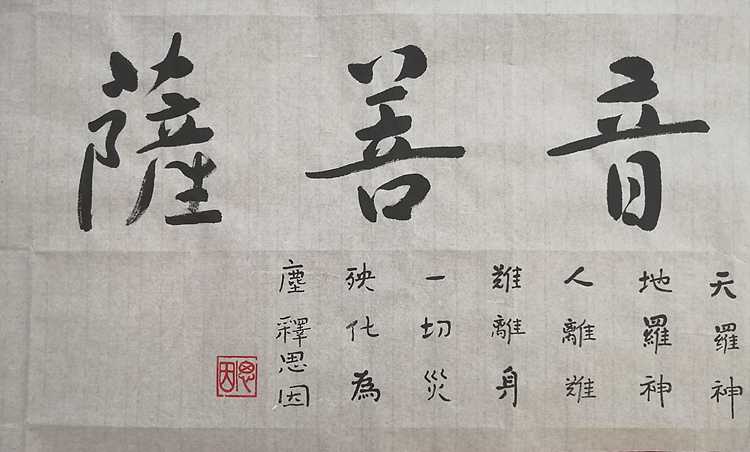 音菩薩
天羅神
地羅神
人離難
難離身
一切災
殃化為
塵 釋思因
思因